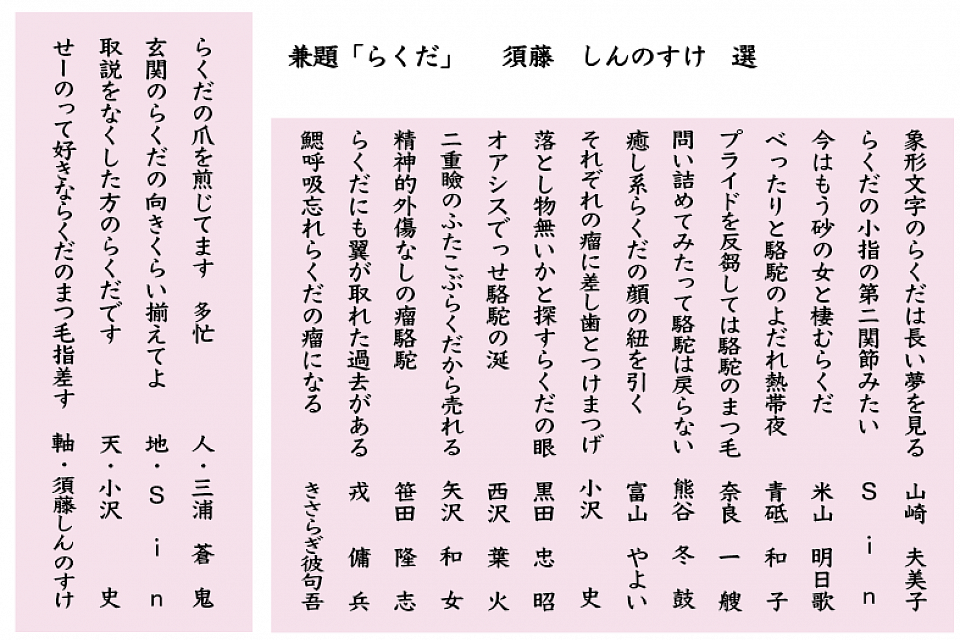 兼題「らくだ」　須藤　しんのすけ　選
象形文字のらくだは長い夢を見る　山崎　夫美子
らくだの小指の第二関節みたい　Ｓｉｎ
今はもう砂の女と棲むらくだ　米山　明日歌
べったりと駱駝のよだれ熱帯夜　青砥　和子
プライドを反芻しては駱駝のまつ毛　奈良　一艘
問い詰めてみたって駱駝は戻らない　熊谷　冬鼓
癒し系らくだの顔の紐を引く　富山　やよい
それぞれの瘤に差し歯とつけまつげ　小沢　史
落とし物無いかと探すらくだの眼　黒田　忠昭
オアシスでっせ駱駝の涎　西沢　葉火
二重瞼のふたこぶらくだから売れる　矢沢　和女
精神的外傷なしの瘤駱駝　笹田　隆志
らくだにも翼が取れた過去がある　戎　傭兵
鰓呼吸忘れらくだの瘤になる　きさらぎ彼句吾
らくだの爪を煎じてます　多忙　人・三浦　蒼鬼
玄関のらくだの向きくらい揃えてよ　地・Ｓｉｎ
取説をなくした方のらくだです　天・小沢　史
せーのって好きならくだのまつ毛指差す　軸・須藤しんのすけ